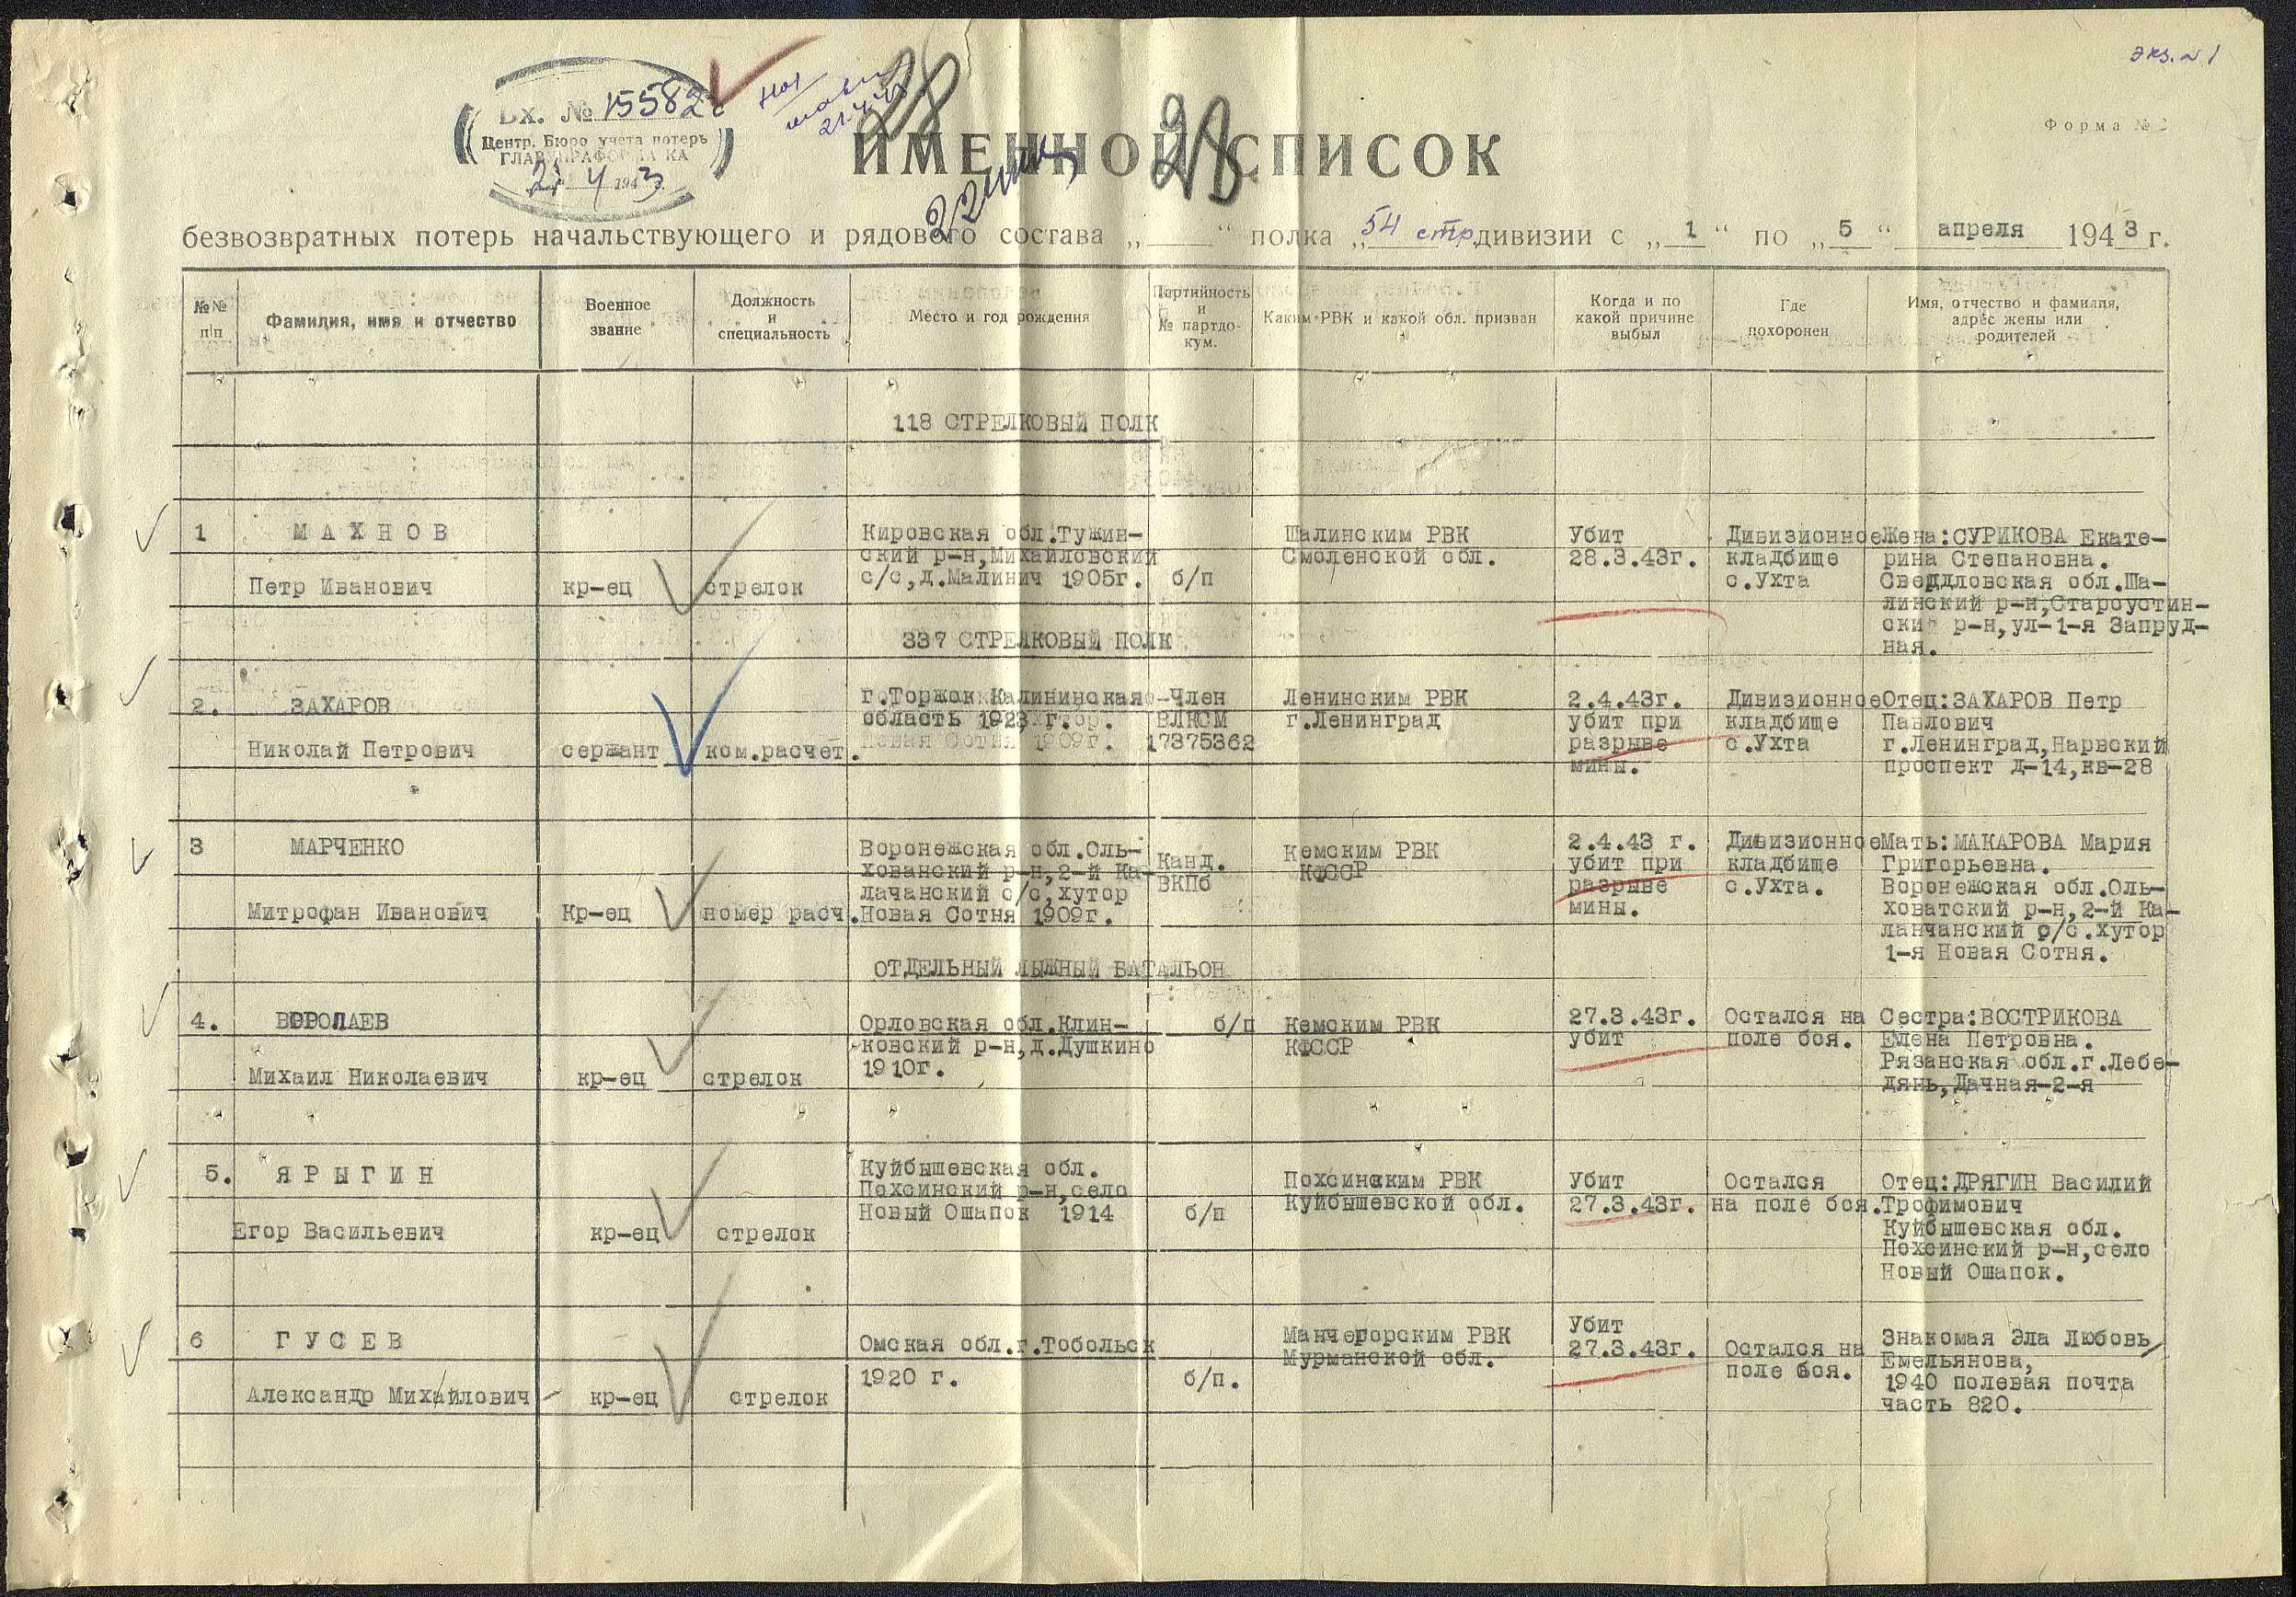 экз. № 1
Вх. № 15582с
Центр. Бюро учета потерь
ГЛАВУПРАФОРМА КА
21 4 1943
28
28
Форма № 2
ИМЕННОЙ СПИСОК
безвозвратных потерь начальствующего и рядового состава „ “ полка „54 стр дивизии с „1“ по „5“ апреля 1943 г.
№№ п/п
Фамилия, имя и отчество
Военное звание
Должность и специальность
Место и год рождения
Партийность и № партдокум.
Каким РВК и какой обл. призван
Когда и по какой причине выбыл
Где похоронен
Имя, отчество и фамилия, адрес жены или родителей
118 СТРЕЛКОВЫЙ ПОЛК
1
МАХНОВ
Петр Иванович
кр-ец
стрелок
Кировская обл.Тужин-
ский р-н,Михайловский
с/с,д.Малинич 1905г.
б/п
Шалинским РВК
Смоленской обл.
Убит
28.3.43г.
Дивизионное
кладбище
с.Ухта
Жена:СУРИКОВА Екате-
рина Степановна.
Свердловская обл.Ша-
линский р-н,Староустин-
ский р-н,ул-1-я Запруд-
ная.
337 СТРЕЛКОВЫЙ ПОЛК
2.
ЗАХАРОВ
Николай Петрович
сержант
ком.расчет.
г.Торжок Калининская
область 1923 г.
Член
ВЛКСМ
17375362
Ленинским РВК
г.Ленинград
2.4.43г.
убит при
разрыве
мины.
Дивизионное
кладбище
с.Ухта
Отец:ЗАХАРОВ Петр
Павлович
г.Ленинград,Нарвский
проспект д-14,кв-28
3
МАРЧЕНКО
Митрофан Иванович
Кр-ец
номер расч.
Воронежская обл.Оль-
хованский р-н,2-й Ка-
лачанский с/с,хутор
Новая Сотня 1909г.
Канд.
ВКПб
Кемским РВК
КФССР
2.4.43 г.
убит при
разрыве
мины.
Дивизионное
кладбище
с.Ухта.
Мать:МАКАРОВА Мария
Григорьевна.
Воронежская обл.Оль-
ховатский р-н,2-й Ка-
ланчанский с/с.хутор
1-я Новая Сотня.
ОТДЕЛЬНЫЙ ЛЫЖНЫЙ БАТАЛЬОН
4.
Михаил Николаевич
кр-ец
стрелок
Орловская обл.Клин-
ковский р-н,д.Душкино
1910г.
б/п
Кемским РВК
КФССР
27.3.43г.
убит
Остался на
поле боя.
Сестра:ВОСТРИКОВА
Елена Петровна.
Рязанская обл.г.Лебе-
дянь,Дачная-2-я
5.
ЯРЫГИН
Егор Васильевич
кр-ец
стрелок
Куйбышевская обл.
Похсинский р-н,село
Новый Ошапок 1914
б/п
Похсинским РВК
Куйбышевской обл.
Убит
27.3.43г.
Остался
на поле боя.
Отец:ДРЯГИН Василий
Трофимович
Куйбышевская обл.
Похсинский р-н,село
Новый Ошапок.
6
ГУСЕВ
Александр Михайлович
кр-ец
стрелок
Омская обл.г.Тобольск
1920 г.
б/п.
Манчегорским РВК
Мурманской обл.
Убит
27.3.43г.
Остался на
поле боя.
Знакомая Эла Любовь
Емельянова,
1940 полевая почта
часть 820.